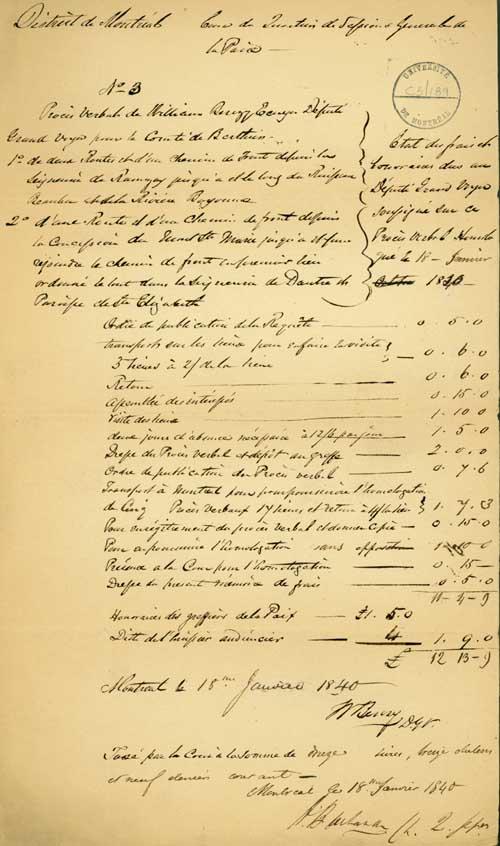 District de Montréal Cour de Quartier de Sessions General de
la Paix
No 3
Procès Verbal de William Berczy Ecuyer Député
Grand Voyer pour le Comté de Berthier
1o de deux Routes et d'un chemin de front depuis la
Seigneurie de Ramsay jusqu'à et le long du Ruisseau
et de la Rivière Bayonne
2o d'une Route et d'un Chemin de front depuis
la Concession du Ste Marie jusqu'à et pour
rejoindre le chemin de front en premier lieu
ordonné le tout dans la Seigneurie de Dautré et
Paroisse de Ste Elizabeth
Etat des frais et
honoraires dus au
Député Grand Voyer
soussigné sur ce
Procès Verbal Homolo
gué le 18 Janvier
1840
Ordre de publication de la Requête 0. 5. 0
transport sur les lieux pour en faire la visite
3 lieues à 2/ de la lieue 0. 6. 0
Retour 0. 6. 0
assemblée des intéressés 0. 15. 0
Visite des lieux 1. 10. 0
deux jours d'absence nécessaire à 12/6 par jour 1. 5. 0
Dresse du Procès verbal et dépôt au greffe 2. 0. 0
Ordre de publication du Procès verbal 0. 7. 6
Transport à Montréal pour poursuivre l'homologation
de Cinq Procès Verbaux 17 lieues et retour 1. 7. 3
Pour enregistrement du procès verbal et donner Copie 0. 15. 0
Pour en poursuivre l'homologation sans opposition
Présence à la Cour pour l'homologation 0. 15
Dresse du présent mémoire de frais 0. 5. 0
11 - 4 - 9
Honoraires des greffiers de la Paix £1. 5. 0
Ditto de l'huissier audiencier 4 1. 9. 0
£ 12 13 - 9
Montréal le 18me Janvier 1840
W Berczy
D G V
Taxé par la Cour à la somme de douze livres, treize chelins
et neuf deniers courant
Montréal le 18me Janvier 1840
UNIVERSITÉ
DE MONTRÉAL